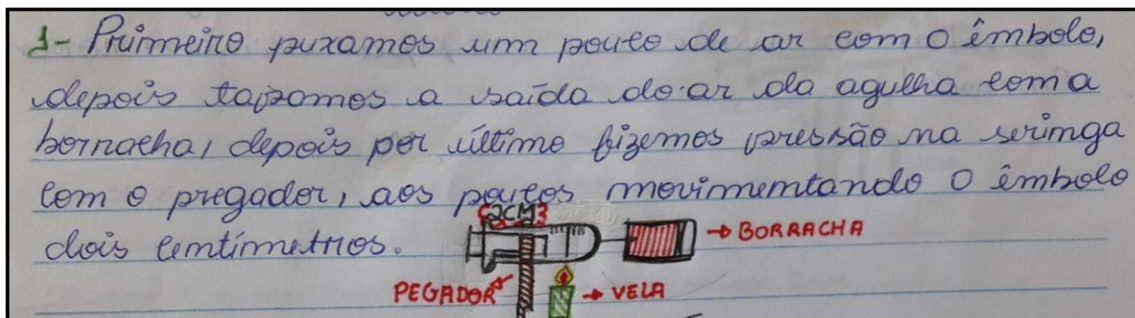 1- Primeiro puxamos um pouco de ar com o êmbolo,
depois tapamos a saída do ar da agulha com a
borracha, depois por último fizemos pressão na seringa
com o pregador, aos poucos movimentando o êmbolo
dois centímetros.
2CM
→ BORRACHA
PEGADOR
→ VELA